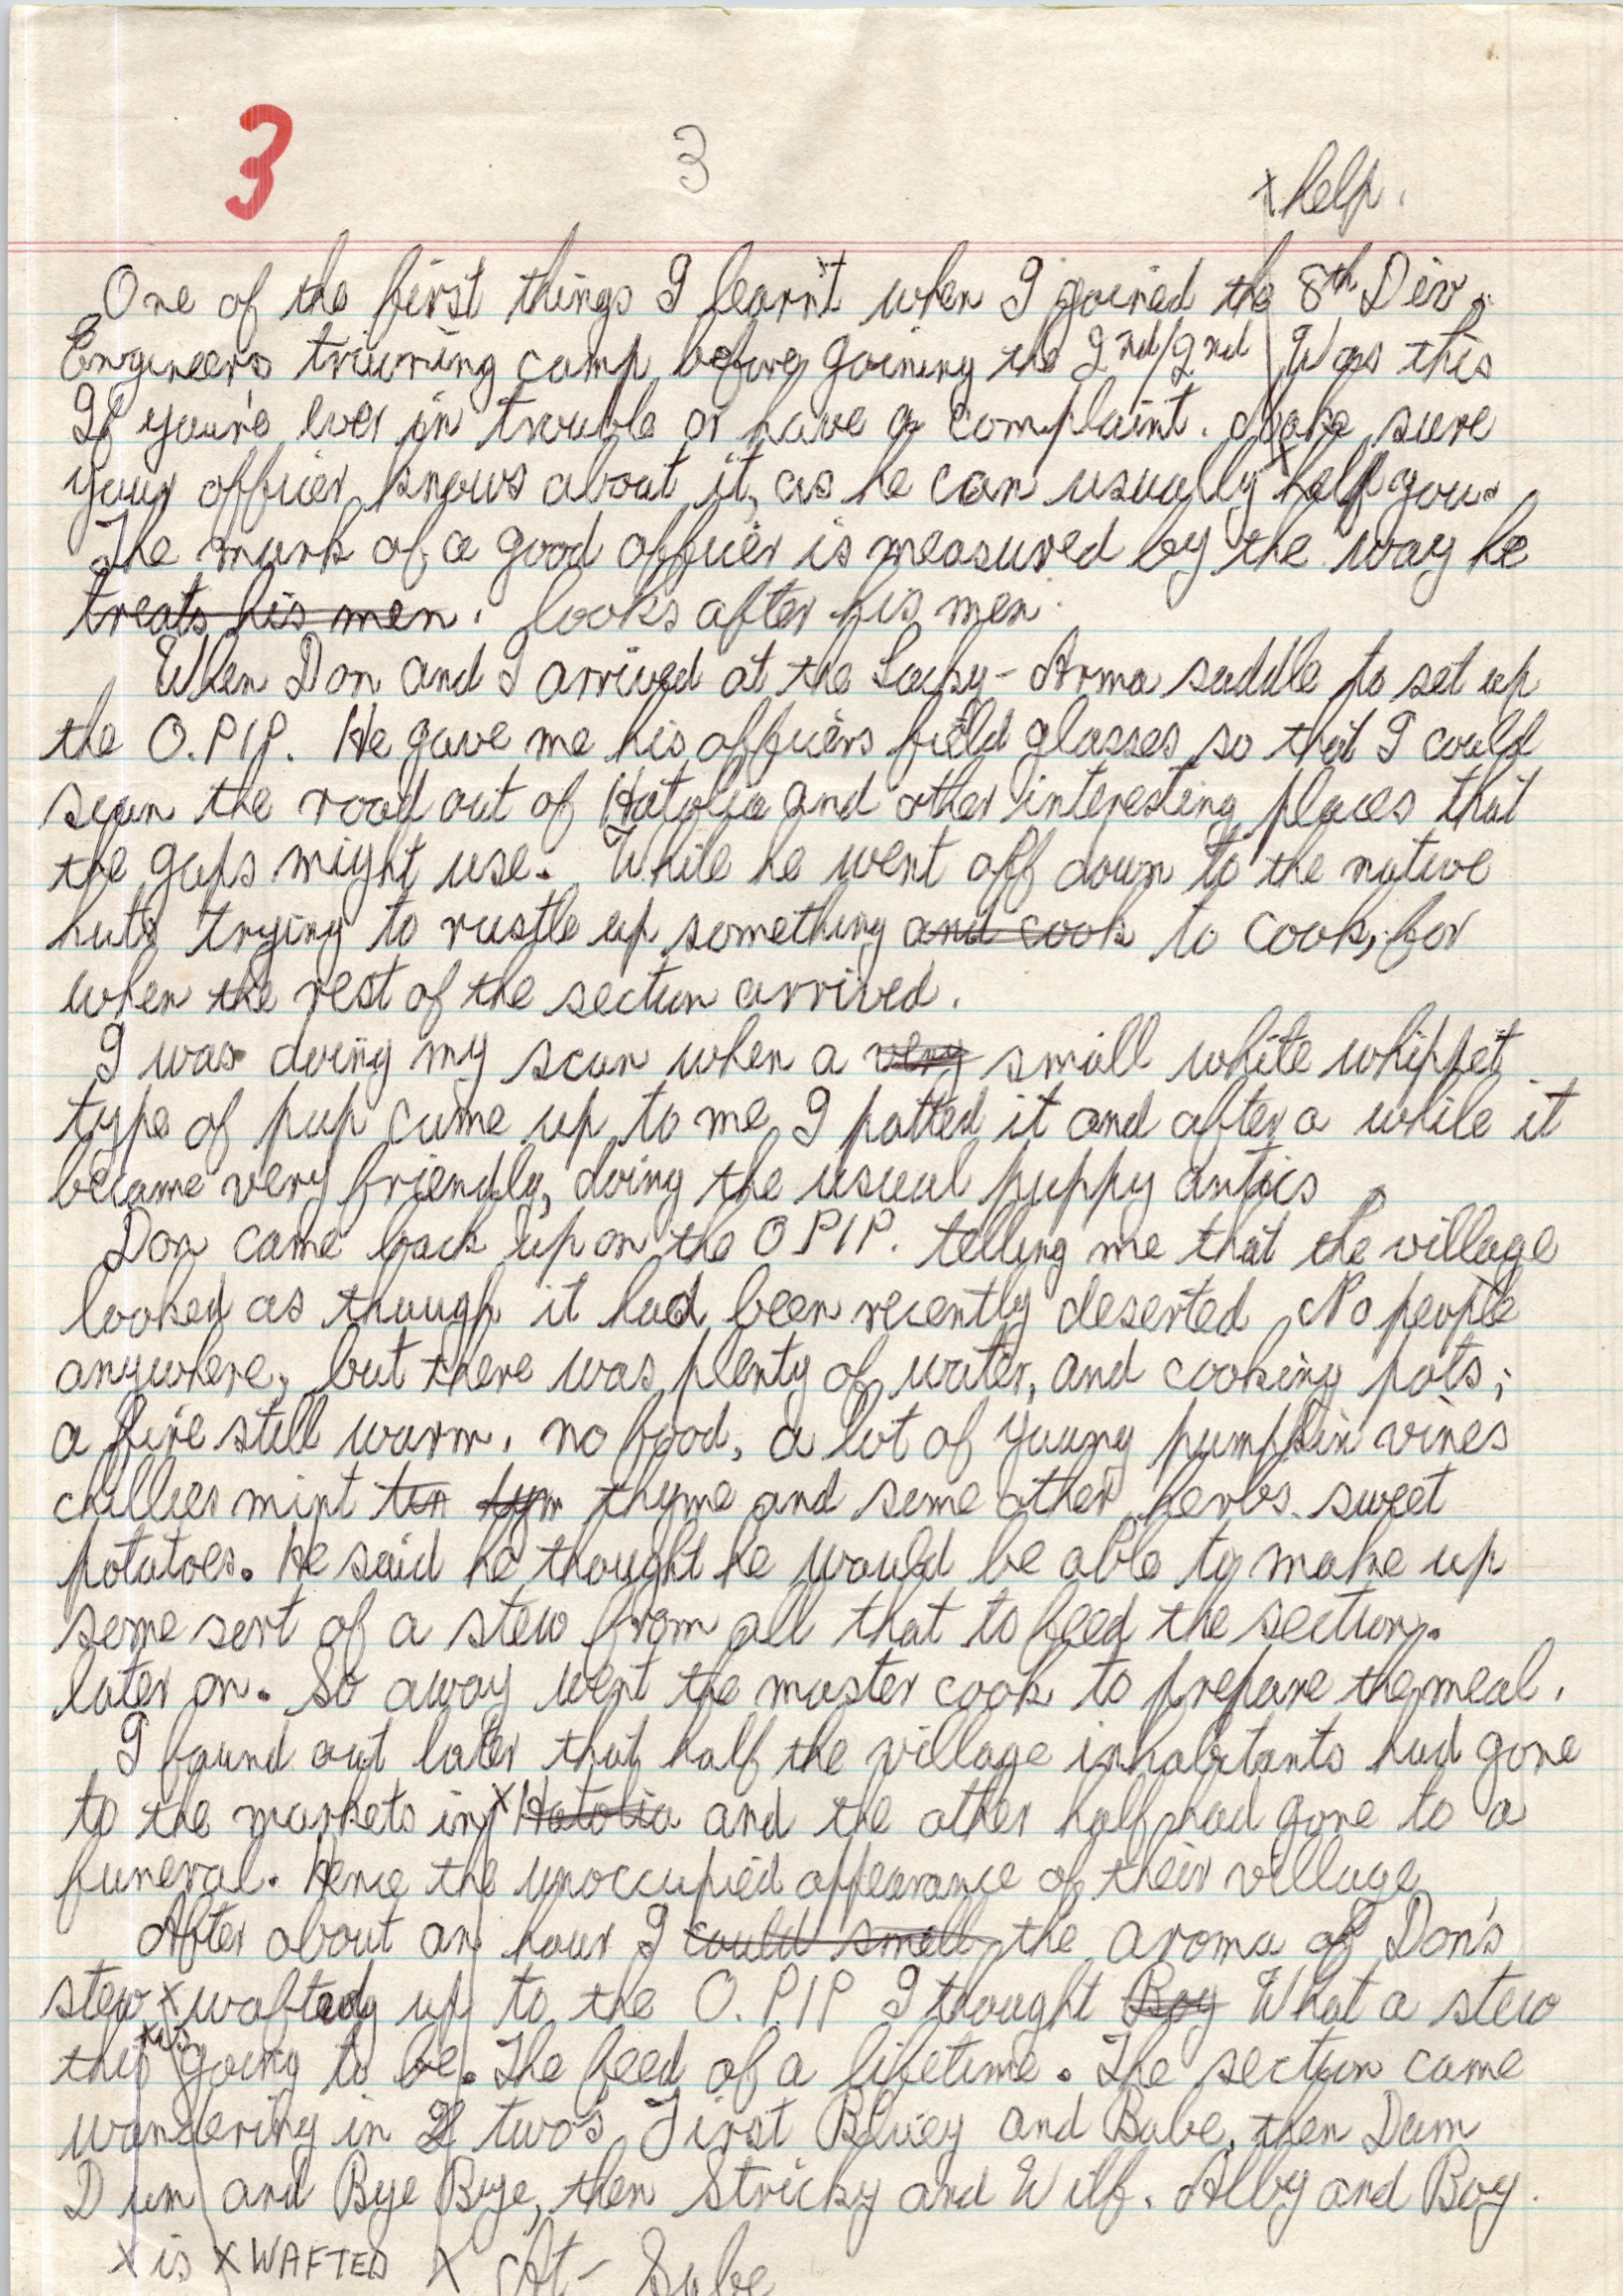 3 3
x help.
One of the first things I learn't when I joined the 8th Div.
Engineers training camp before joining the 2nd/2nd Was this
If you're ever in trouble or have a complaint. Make sure
your officer knows about it, as he can usually help you.
The mark of a good officer is measured by the way he
treats his men. looks after his men.
When Don and I arrived at the Laky-Arma saddle to set up
the O.PIP. He gave me his officers field glasses so that I could
scan the road out of Hatolia and other interesting places that
the gaps might use. While he went off down to the native
huts trying to rustle up something and cook to cook, for
when the rest of the section arrived.
I was doing my scan when a very small white whippet
type of pup came up to me I patted it and after a while it
became very friendly, doing the usual puppy antics
Don came back up on the O PIP. telling me that the village
looked as though it had been recently deserted No people
anywhere, but there was plenty of water, and cooking pots,
a fire still warm. no food, a lot of young pumpkin vines
chillies mint thyme and some other herbs. sweet
potatoes. He said he thought he would be able to make up
some sort of a stew from all that to feed the section.
later on. So away went the master cook to prepare the meal.
I found out later that half the village inhabitants had gone
to the markets in x Hatolia and the other half had gone to a
funeral. Hence the unoccupied appearance of their village
After about an hour I could smell the aroma of Don's
stew x wafted up to the O.PIP I thought Boy What a stew
this going to be. The feed of a lifetime. The section came
wandering in 2 two's First Bluey and Babe, then Dum
Dum and Bye Bye, then Stricky and Wilf. Alby and Boy.
x is x WAFTED x At- Sabe